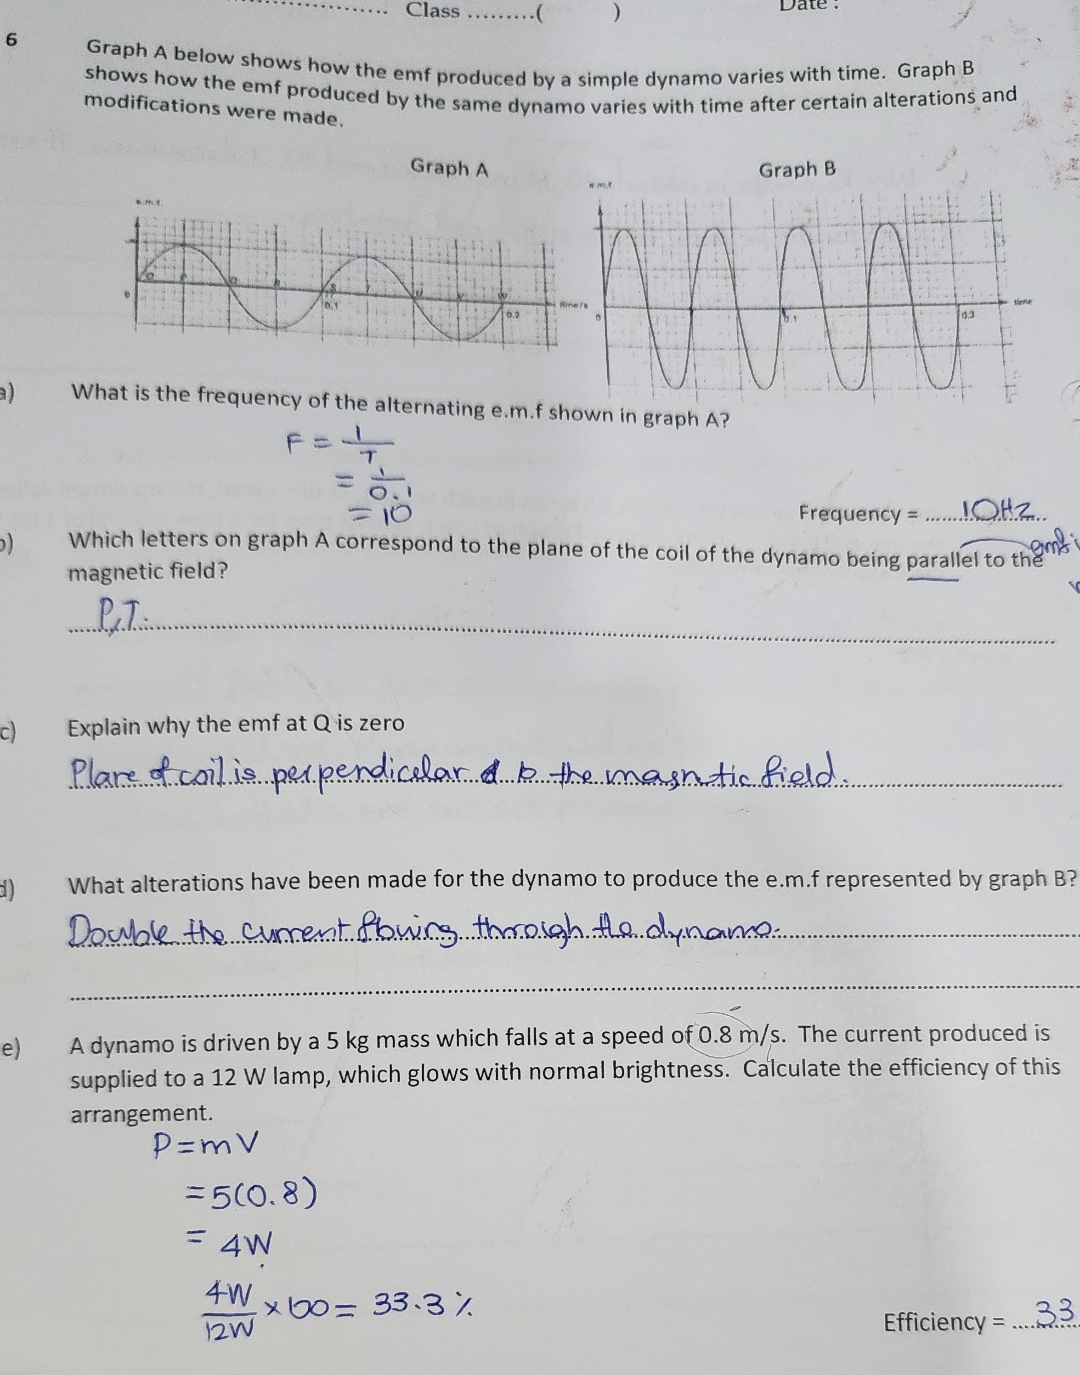 Class .........( ) Date :
6
Graph A below shows how the emf produced by a simple dynamo varies with time. Graph B
shows how the emf produced by the same dynamo varies with time after certain alterations and
modifications were made.
Graph A Graph B
e.m.f. e.m.f
0 0.1 0.2 time/s
0 0.1 0.2 time
a) What is the frequency of the alternating e.m.f shown in graph A?
F = 1/T
= 1/0.1
= 10
Frequency = ......10Hz..
b) Which letters on graph A correspond to the plane of the coil of the dynamo being parallel to the
magnetic field?
P,T.
c) Explain why the emf at Q is zero
Plane of coil is perpendicelar to the magnetic field.
d) What alterations have been made for the dynamo to produce the e.m.f represented by graph B?
Double the current flowing through the dynamo.
e) A dynamo is driven by a 5 kg mass which falls at a speed of 0.8 m/s. The current produced is
supplied to a 12 W lamp, which glows with normal brightness. Calculate the efficiency of this
arrangement.
P = mV
= 5(0.8)
= 4W
4W/12W × 100 = 33.3 %
Efficiency = ....33